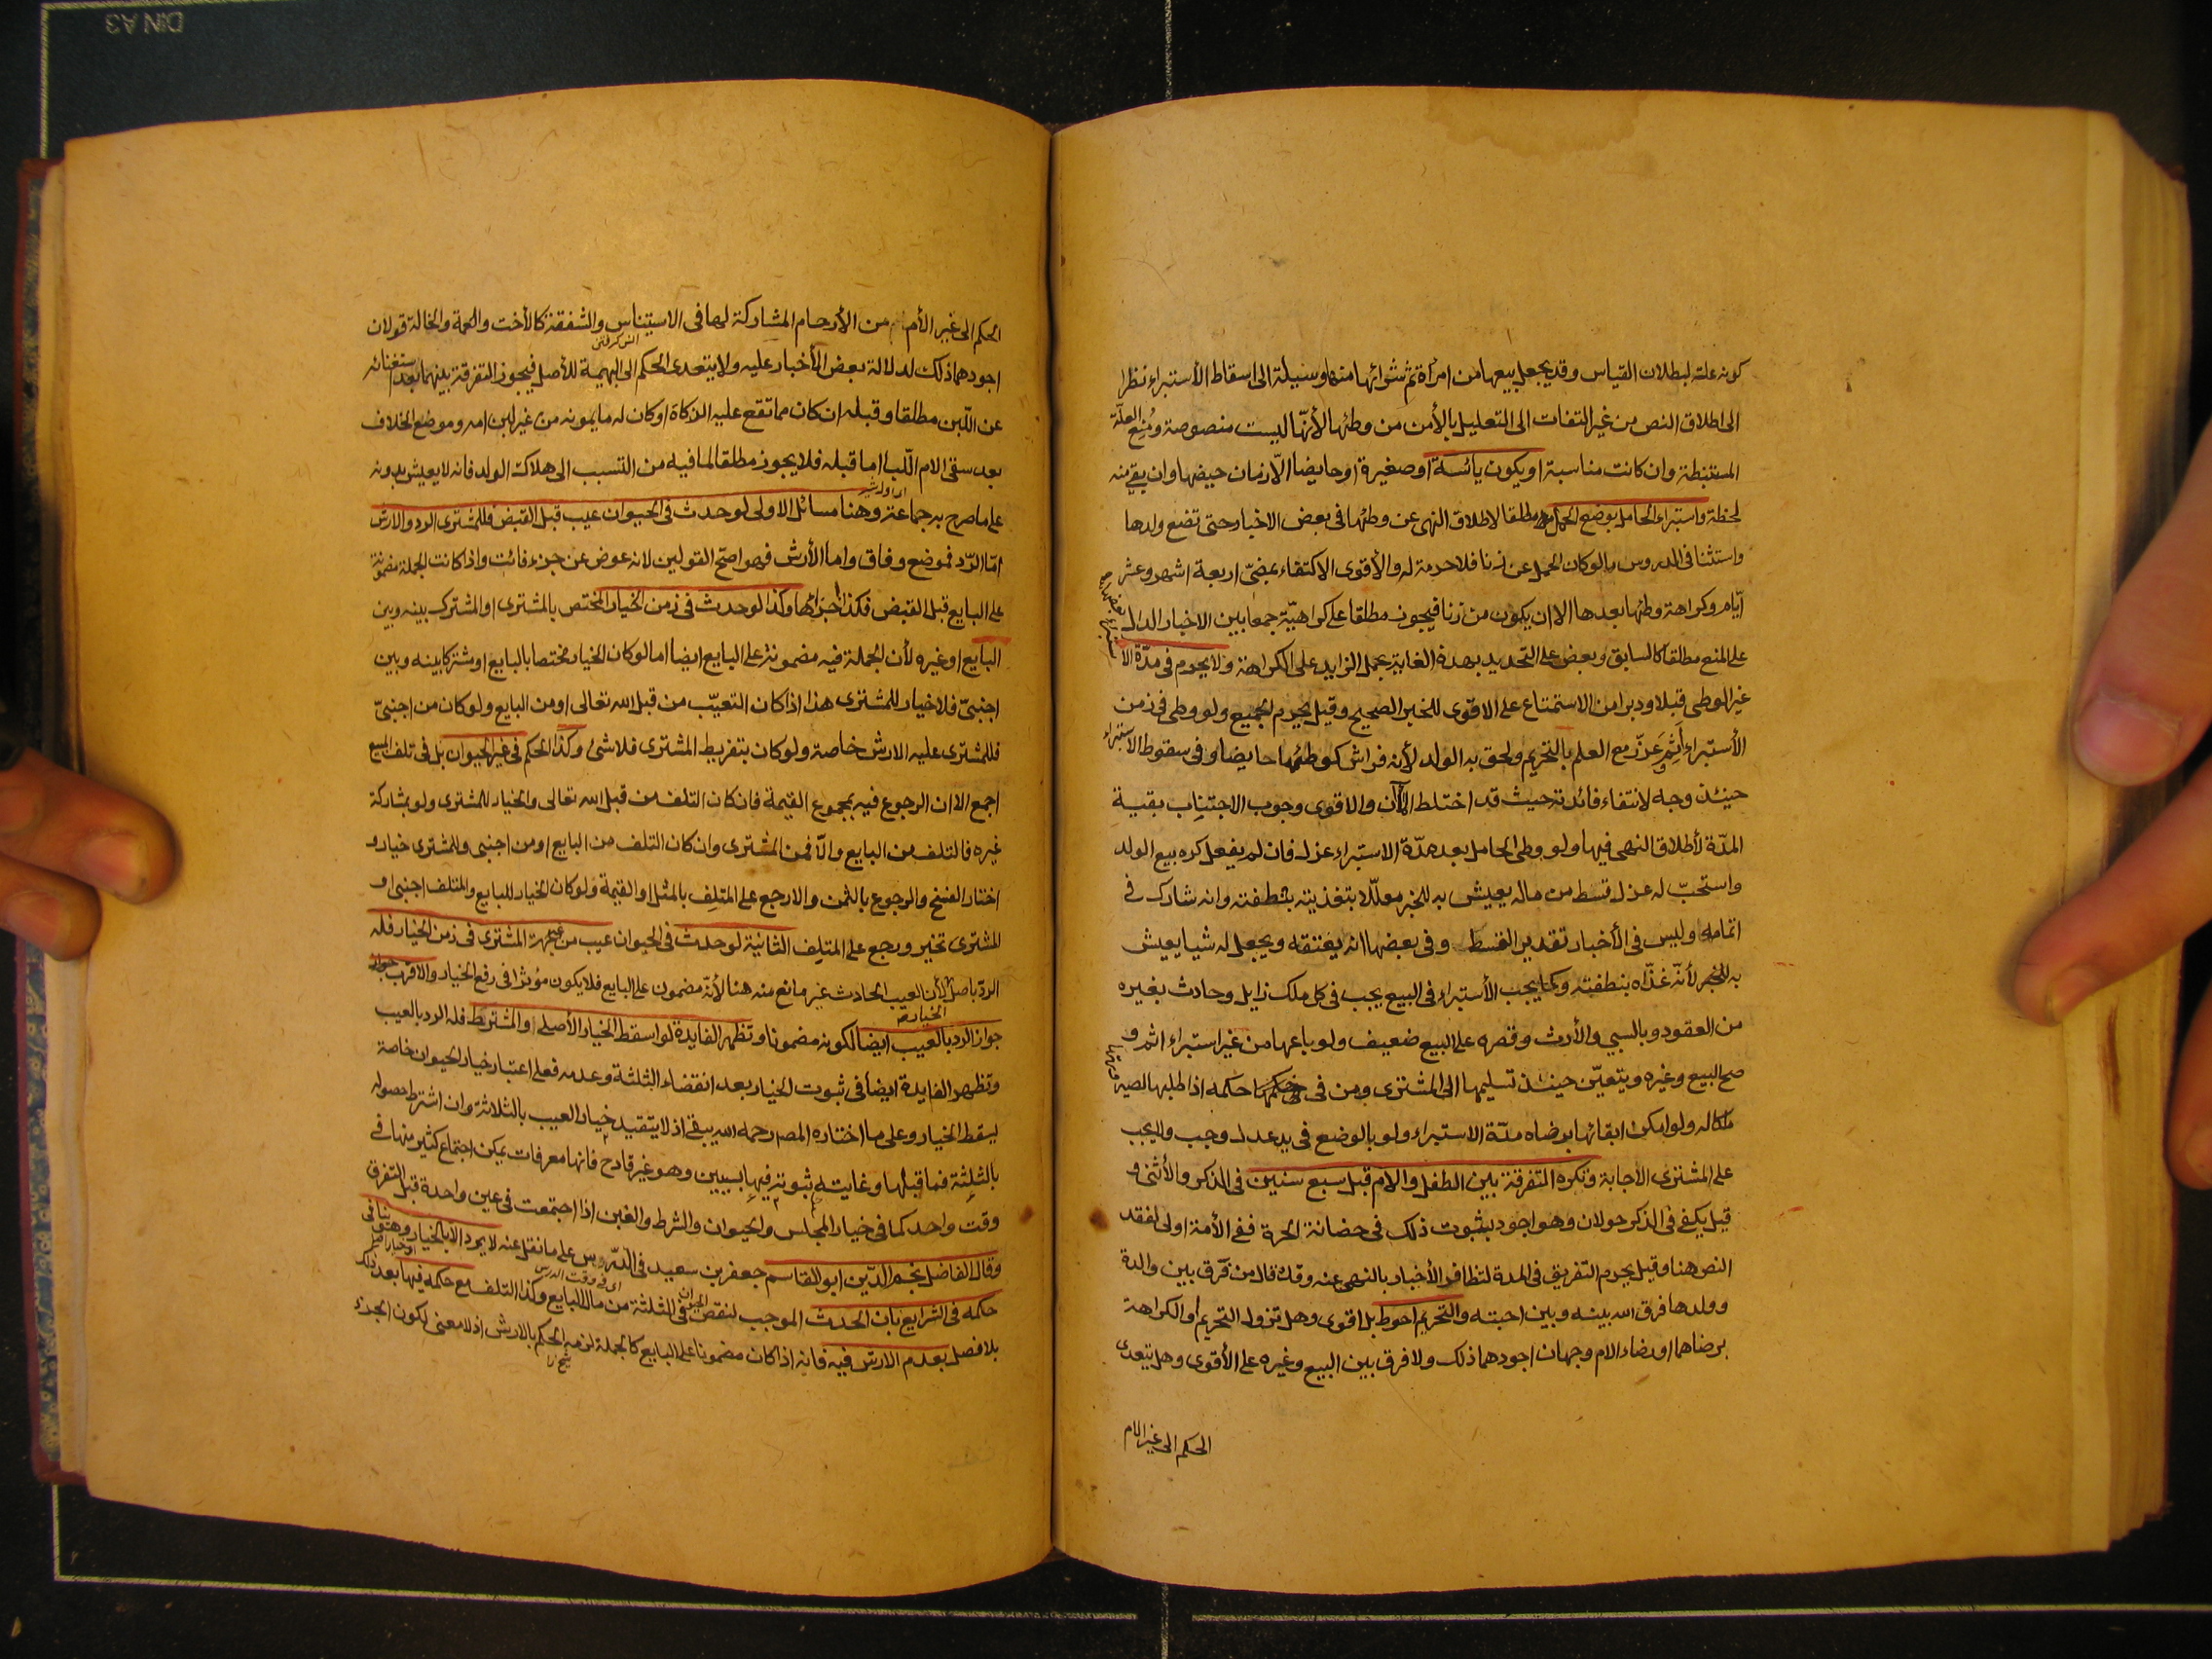 كونه علته لبطلان القياس وقد يجعل بيعها من امرأة ثم شرائها منها وسيلة الى اسقاط الأستبراء نظرا
الى اطلاق النص من غير التفات الى التعليل بالأمن من وطئها لأنّها ليست منصوصة ومُنِع العلّة
المستنبطة وان كانت مناسبة او يكون يائسة او صغيرة او حايضا الّا زمان حيضها وان بقي منه
لحظة واستبراء الحامل بوضع الحمل مطلقا لاطلاق النهى عن وطئها فى بعض الاخبار حتى تضع ولدها
واستثنا فى الدروس ما لو كان الحمل عن زنا فلا حرمة له والأقوى الاكتفاء بمضىّ اربعة اشهر وعشر
ايّام وكراهة وطئها بعدها الا ان يكون من زنا فيجوز مطلقا على كراهيّة جمعا بين الاخبار الدال بعضها
على المنع مطلقا كالسابق وبعض على التحديد بهذه الغاية بحمل الزايد على الكراهة ولا يحرم فى مدّة الاستبراء
غير الوطى قبلا ودبرا من الاستمتاع على الاقوى للخبر الصحيح وقيل يحرم الجميع ولو وطى فى زمن
الأستبراء أثِم وعزّر مع العلم بالتحريم ولحق به الولد لأنه فراش كوطئها حايضا وفى سقوط الأستبراء
حينئذ وجه لانتفاء فائدته حيث قد اختلط المآن والاقوى وجوب الاجتناب بقية
المدّة لأطلاق النهى فيها ولو وطى الحامل بعد مدّة الاستبراء عزل فان لم يفعل كره بيع الولد
واستحبّ له عزل قسط من ماله يعيش به للخبر معلّلا بتغذيته بنطفته وانه شارك فى
اتمامه وليس فى الأخبار تقدير القسط وفى بعضها انه يعتقه ويجعل له شيا يعيش
به للخبر لأنّه غذّاه بنطفته وكما يجب الأستبراء فى البيع يجب فى كل ملك زايل وحادث بغيره
من العقود وبالسبي والأرث وقصره على البيع ضعيف ولو باعها من غير استبراء اثم و
صح البيع وغيره ويتعيّن حينئذ تسليمها الى المشترى ومن فى حكمه اذا طلبها لصيرورتها
ملكا له ولو امكن ابقائها برضاه مدّة الاستبراء ولو بالوضع فى يد عدل وجب ولا يجب
على المشترى الاجابة وتكره التفرقة بين الطفل والام قبل سبع سنين فى الذكر والأنثى و
قيل يكفى فى الذكر حولان وهو اجود لثبوت ذلك فى حضانة الحرة ففى الأمة اولى لفقد
النص هنا وقيل يحرم التفريق فى المدة لتظافر الأخبار بالنهى عنه وقد قال من فرّق بين والدة
وولدها فرق الله بينه وبين احبته والتحريم احوط بل اقوى وهل تزول التحريم او الكراهة
برضاهما او رضاء الام وجهان اجودهما ذلك ولا فرق بين البيع وغيره على الأقوى وهل يتعدى
الحكم الى غير الام
الحكم الى غير الأم من الأرحام المشاركة لها فى الاستيناس والشفقة كالأخت والعمة والخالة قولان
اجودهما ذلك لدلالة بعض الأخبار عليه ولا يتعدى الحكم الى البهيمة للأصل فيجوز التفرقة بينهما بعد استغنائه
عن اللّبن مطلقا وقبله ان كان مما تقع عليه الزكاة او كان له ما يمونه من غير لبن امه وموضع الخلاف
بعد سقى الام اللّبا اما قبله فلا يجوز مطلقا لما فيه من التسبب الى هلاك الولد فانه لا يعيش بدونه
على ما صرح به جماعة وهنا مسائل الاولى لو حدث فى الحيوان عيب قبل القبض فللمشترى الرد والارش
امّا الرّد فموضع وفاق واما الأرش فهو اصحّ القولين لانه عوض عن جزء فائت واذا كانت الجملة مضمونة
على البايع قبل القبض فكذا اجزائها وكذا لو حدث فى زمن الخيار المختص بالمشترى او المشترك بينه وبين
البايع او غيره لأن الجملة فيه مضمونة على البايع ايضا اما لو كان الخيار مختصا بالبايع او مشتركا بينه وبين
اجنبىّ فلا خيار للمشترى هذا اذا كان التعيّب من قبل الله تعالى او من البايع ولو كان من اجنبىّ
فللمشترى عليه الارش خاصة ولو كان بتفريط المشترى فلا شئ وكذا الحكم فى غير الحيوان بل فى تلف المبيع
اجمع الا ان الرجوع فيه بمجموع القيمة فان كان التلف من قبل الله تعالى والخيار للمشترى ولو بمشاركة
غيره فالتلف من البايع والّا فمن المشترى وان كان التلف من البايع او من اجنبى وللمشترى خيار و
اختار الفسخ والرجوع بالثمن والا رجع على المتلِف بالمثل او القيمة ولو كان الخيار للبايع والمتلف اجنبى او
المشترى تخير ورجع على المتلِف الثانية لو حدث فى الحيوان عيب من غير جهة المشترى فى زمن الخيار فله
الردّ باصل الخيار لأن العيب الحادث غير مانع منه هنا لأنّه مضمون على البايع فلا يكون مؤثرا فى رفع الخيار والاقرب جواز
جواز الرد بالعيب ايضا لكونه مضمونا وتظهر الفايدة لو اسقط الخيار الأصلى والمشترط فله الرد بالعيب
وتظهر الفايدة ايضا فى ثبوت الخيار بعد انقضاء الثلثة وعدمه فعلى اعتبار خيار الحيوان خاصة
يسقط الخيار وعلى ما اختاره المص رحمه الله يبقى اذ لا يتقيد خيار العيب بالثلاثة وان اشترط حصوله
بالثلثة فما قبلها وغايته ثبوته فيها بسببين وهو غير قادح فانها معرفات يمكن اجتماع كثير منها فى
وقت واحد كما فى خيار المجلس والحيوان والشرط والغبن اذا اجتمعت فى عين واحدة قبل التفرق
وقال الفاضل نجم الدّين ابو القاسم جعفر بن سعيد فى الدّروس على ما نقل عنه لا يرد الا بالخيار وهو ينافى
حكمه فى الشرايع بان الحدث الموجب لنقص الحيوان فى الثلثة من مال البايع وكذا التلف مع حكمه فيها بعد ذلك
بلا فصل بعدم الارش فيه فانه اذا كان مضمونا على البايع كالجملة لزمه الحكم بالارش اذ لا معنى لكون الجزء